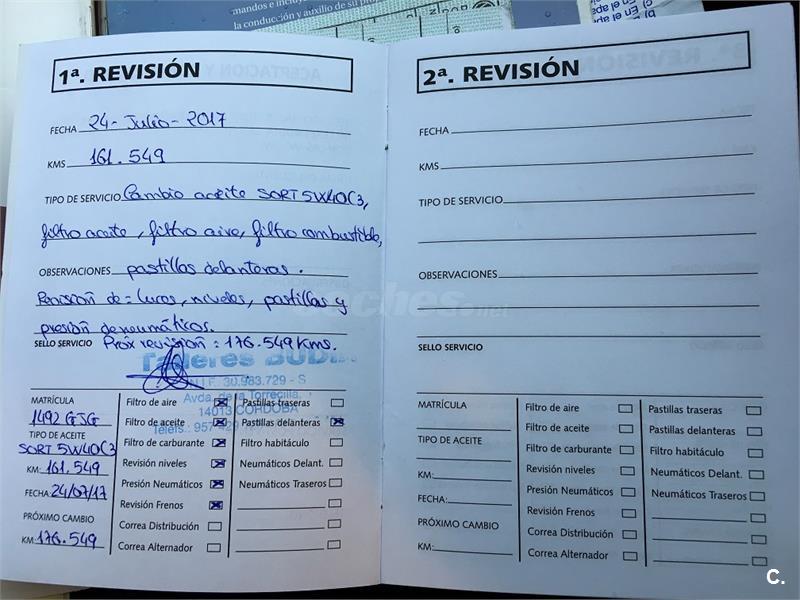 mandos e incluy
la conducción y auxilio de su pro
1ª. REVISIÓN
FECHA 24- Julio - 2017
KMS 161.549
TIPO DE SERVICIO Cambio aceite SORT 5W40C3,
filtro aceite, filtro aire, filtro combustible,
OBSERVACIONES pastillas delanteras.
Revision de= luces, niveles, pastillas y
presión de neumáticos.
SELLO SERVICIO Próx revission: 176.549 Kms.
Talleres
30.983.729 - S
Avda. de la Torrecilla,
14013 CORDOBA
Telefs.: 957
MATRÍCULA
1492 GJG
TIPO DE ACEITE
SORT 5W40C3
KM: 161.549
FECHA: 24/07/17
PRÓXIMO CAMBIO
KM: 176.549
Filtro de aire
Filtro de aceite
Filtro de carburante
Revisión niveles
Presión Neumáticos
Revisión Frenos
Correa Distribución
Correa Alternador
Pastillas traseras
Pastillas delanteras
Filtro habitáculo
Neumáticos Delant.
Neumáticos Traseros
2ª. REVISIÓN
FECHA
KMS
TIPO DE SERVICIO
OBSERVACIONES
SELLO SERVICIO
MATRÍCULA
TIPO DE ACEITE
KM:
FECHA:
PRÓXIMO CAMBIO
KM:
Filtro de aire
Filtro de aceite
Filtro de carburante
Revisión niveles
Presión Neumáticos
Revisión Frenos
Correa Distribución
Correa Alternador
Pastillas traseras
Pastillas delanteras
Filtro habitáculo
Neumáticos Delant.
Neumáticos Traseros
coches.net
C.